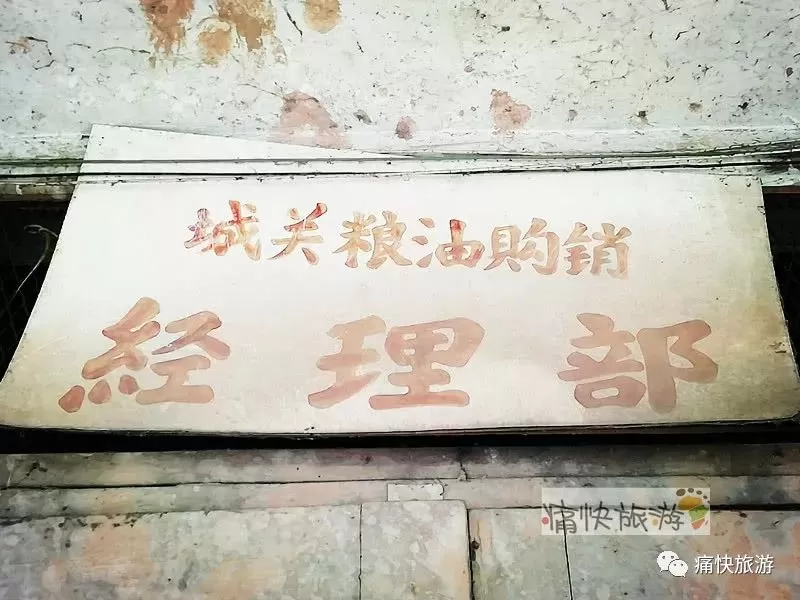 城关粮油购销
经理部
痛快旅游
痛快旅游